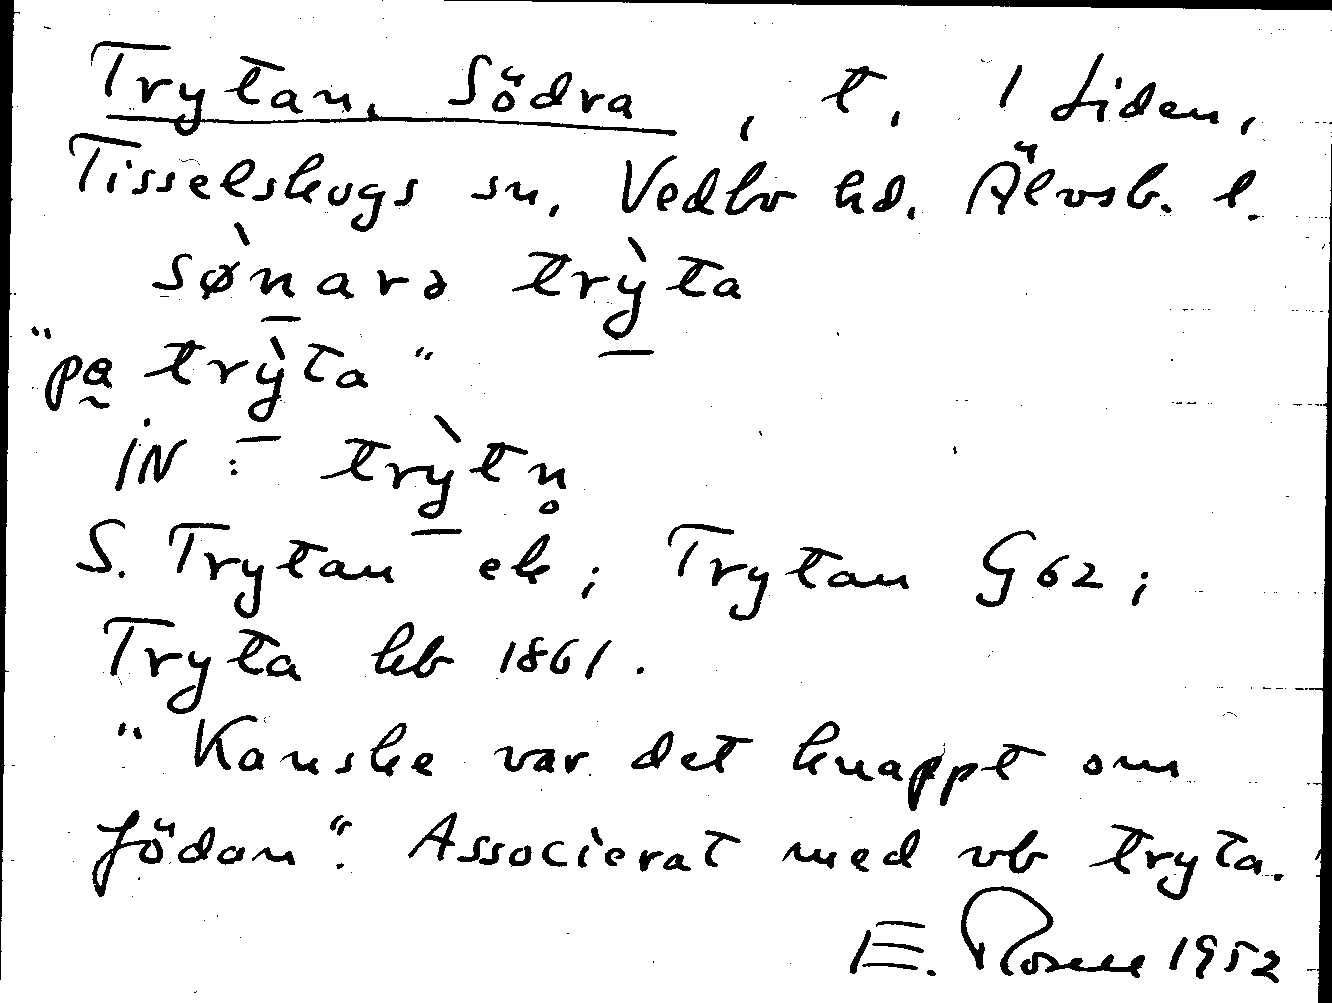 Trytan, Södra, t. 1 Liden,
Tisselskogs sn, Vedbo hd. Älvsb. l.
sø̀n̠arə trỳ̠ta
"på trỳ̠ta"
iN: trỳ̠tn̥
S. Trytan ek; Trytan G62;
Tryta kb 1861.
"Kanske var det knappt om
födan". Associerat med vb tryta.
E. Rosell 1952